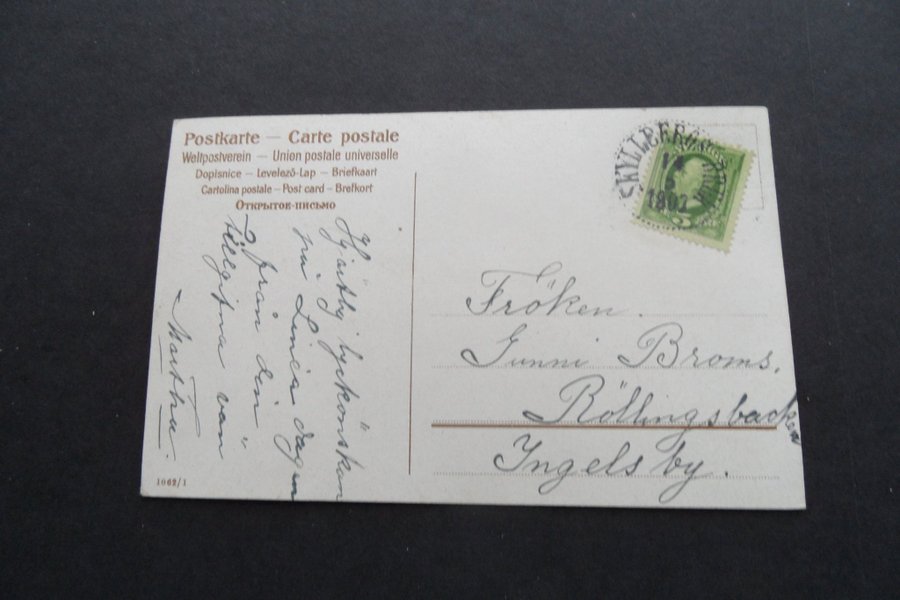 Postkarte — Carte postale
Weltpostverein — Union postale universelle
Dopisnice — Levelező-Lap — Briefkaart
Cartolina postale — Post card — Brefkort
Открытое письмо
Hjärtlig lyckönskan
på dagen
från din
tillgifna vän
Martha.
1062/1
Fröken.
Gunni Broms.
Röllingsbacken
Ingelsby.